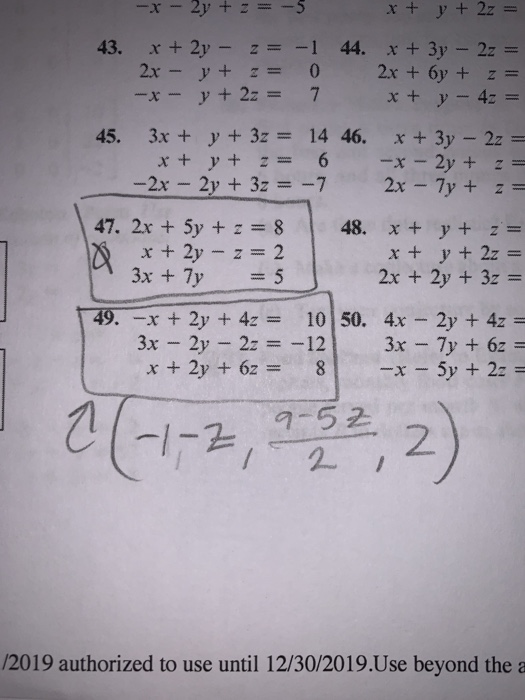 −x − 2y + z = −5 x + y + 2z =
43. x + 2y − z = −1 44. x + 3y − 2z =
2x − y + z = 0 2x + 6y + z =
−x − y + 2z = 7 x + y − 4z =
45. 3x + y + 3z = 14 46. x + 3y − 2z =
x + y + z = 6 −x − 2y + z =
−2x − 2y + 3z = −7 2x − 7y + z =
47. 2x + 5y + z = 8 48. x + y + z =
∅ x + 2y − z = 2 x + y + 2z =
3x + 7y = 5 2x + 2y + 3z =
49. −x + 2y + 4z = 10 50. 4x − 2y + 4z =
3x − 2y − 2z = −12 3x − 7y + 6z =
x + 2y + 6z = 8 −x − 5y + 2z =
↑(-1-z, 9-5z/2, 2)
/2019 authorized to use until 12/30/2019.Use beyond the a